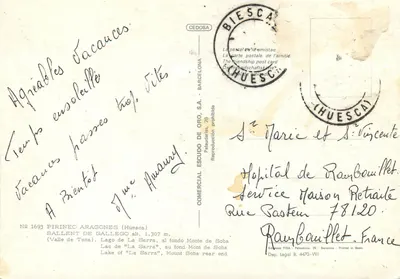 CEDOSA
BIESCAS
(HUESCA)
La carte postale de l'amitié
(HUESCA)
Agréables Vacances
Temps ensoleillé
Vacances passées trop vites
A Bientot
Mme Amaury
COMERCIAL ESCUDO DE ORO, S.A. - BARCELONA
Reproducción prohibida
Ste Marie et St Vincente
Hopital de Rambouillet
Service Maison Retraite
Rue Pasteur 78120
Rambouillet France
1693 PIRINEO ARAGONES (Huesca)
SALLENT DE GALLEGO alt. 1.307 m.
(Valle de Tena). Lago de La Sarra, al fondo Monte de Soba
Lac de "La Sarra", au fond Mont de Soba
Lake of "La Sarra", Mount Soba rear end
Dep. Legal B.